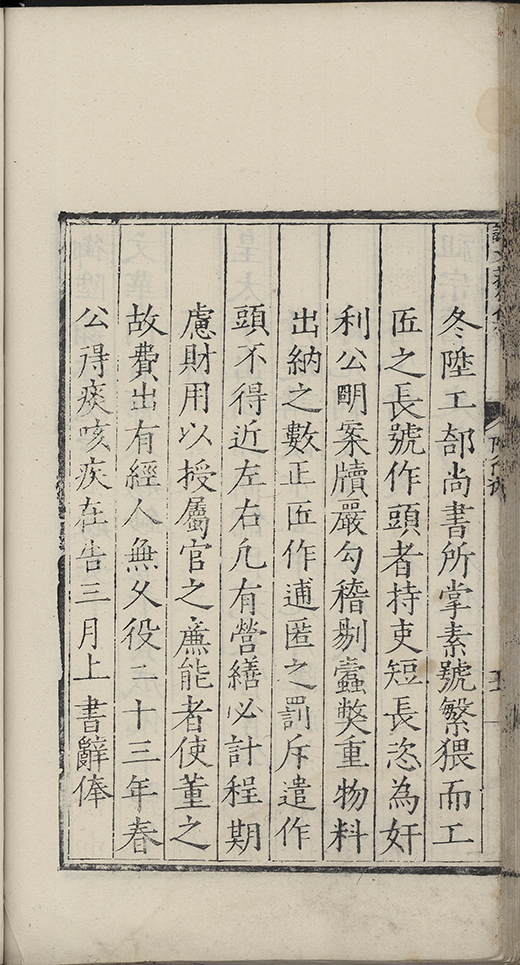 冬陞工部尚書所掌素號繁猥而工
匠之長號作頭者持吏短長恣為奸
利公明案牘嚴勾稽剔蠹獘重物料
出納之數正匠作逋匿之罰斥遣作
頭不得近左右凢有營繕必計程期
慮財用以授屬官之廉能者使董之
故費出有經人無久役二十三年春
公得痰咳疾在告三月上書辭俸